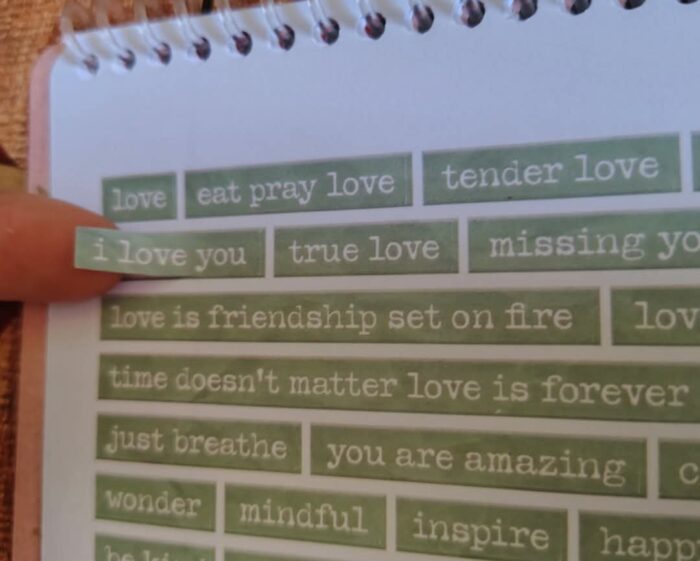 love eat pray love tender love
i love you true love missing
love is friendship set on fire
time doesn't matter love is forever
just breathe you are amazing
wonder mindful inspire